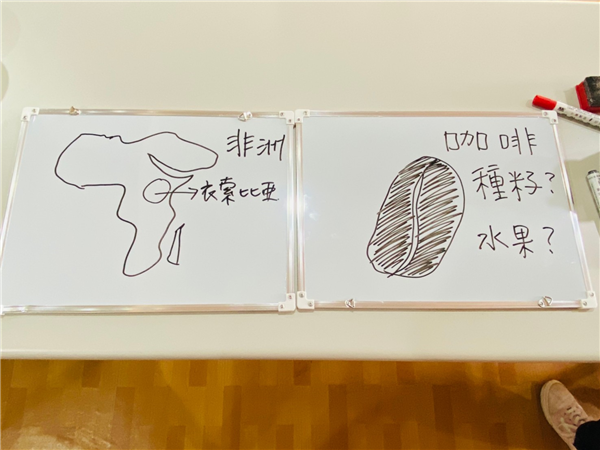 非洲
衣索比亞
咖啡
種籽?
水果?